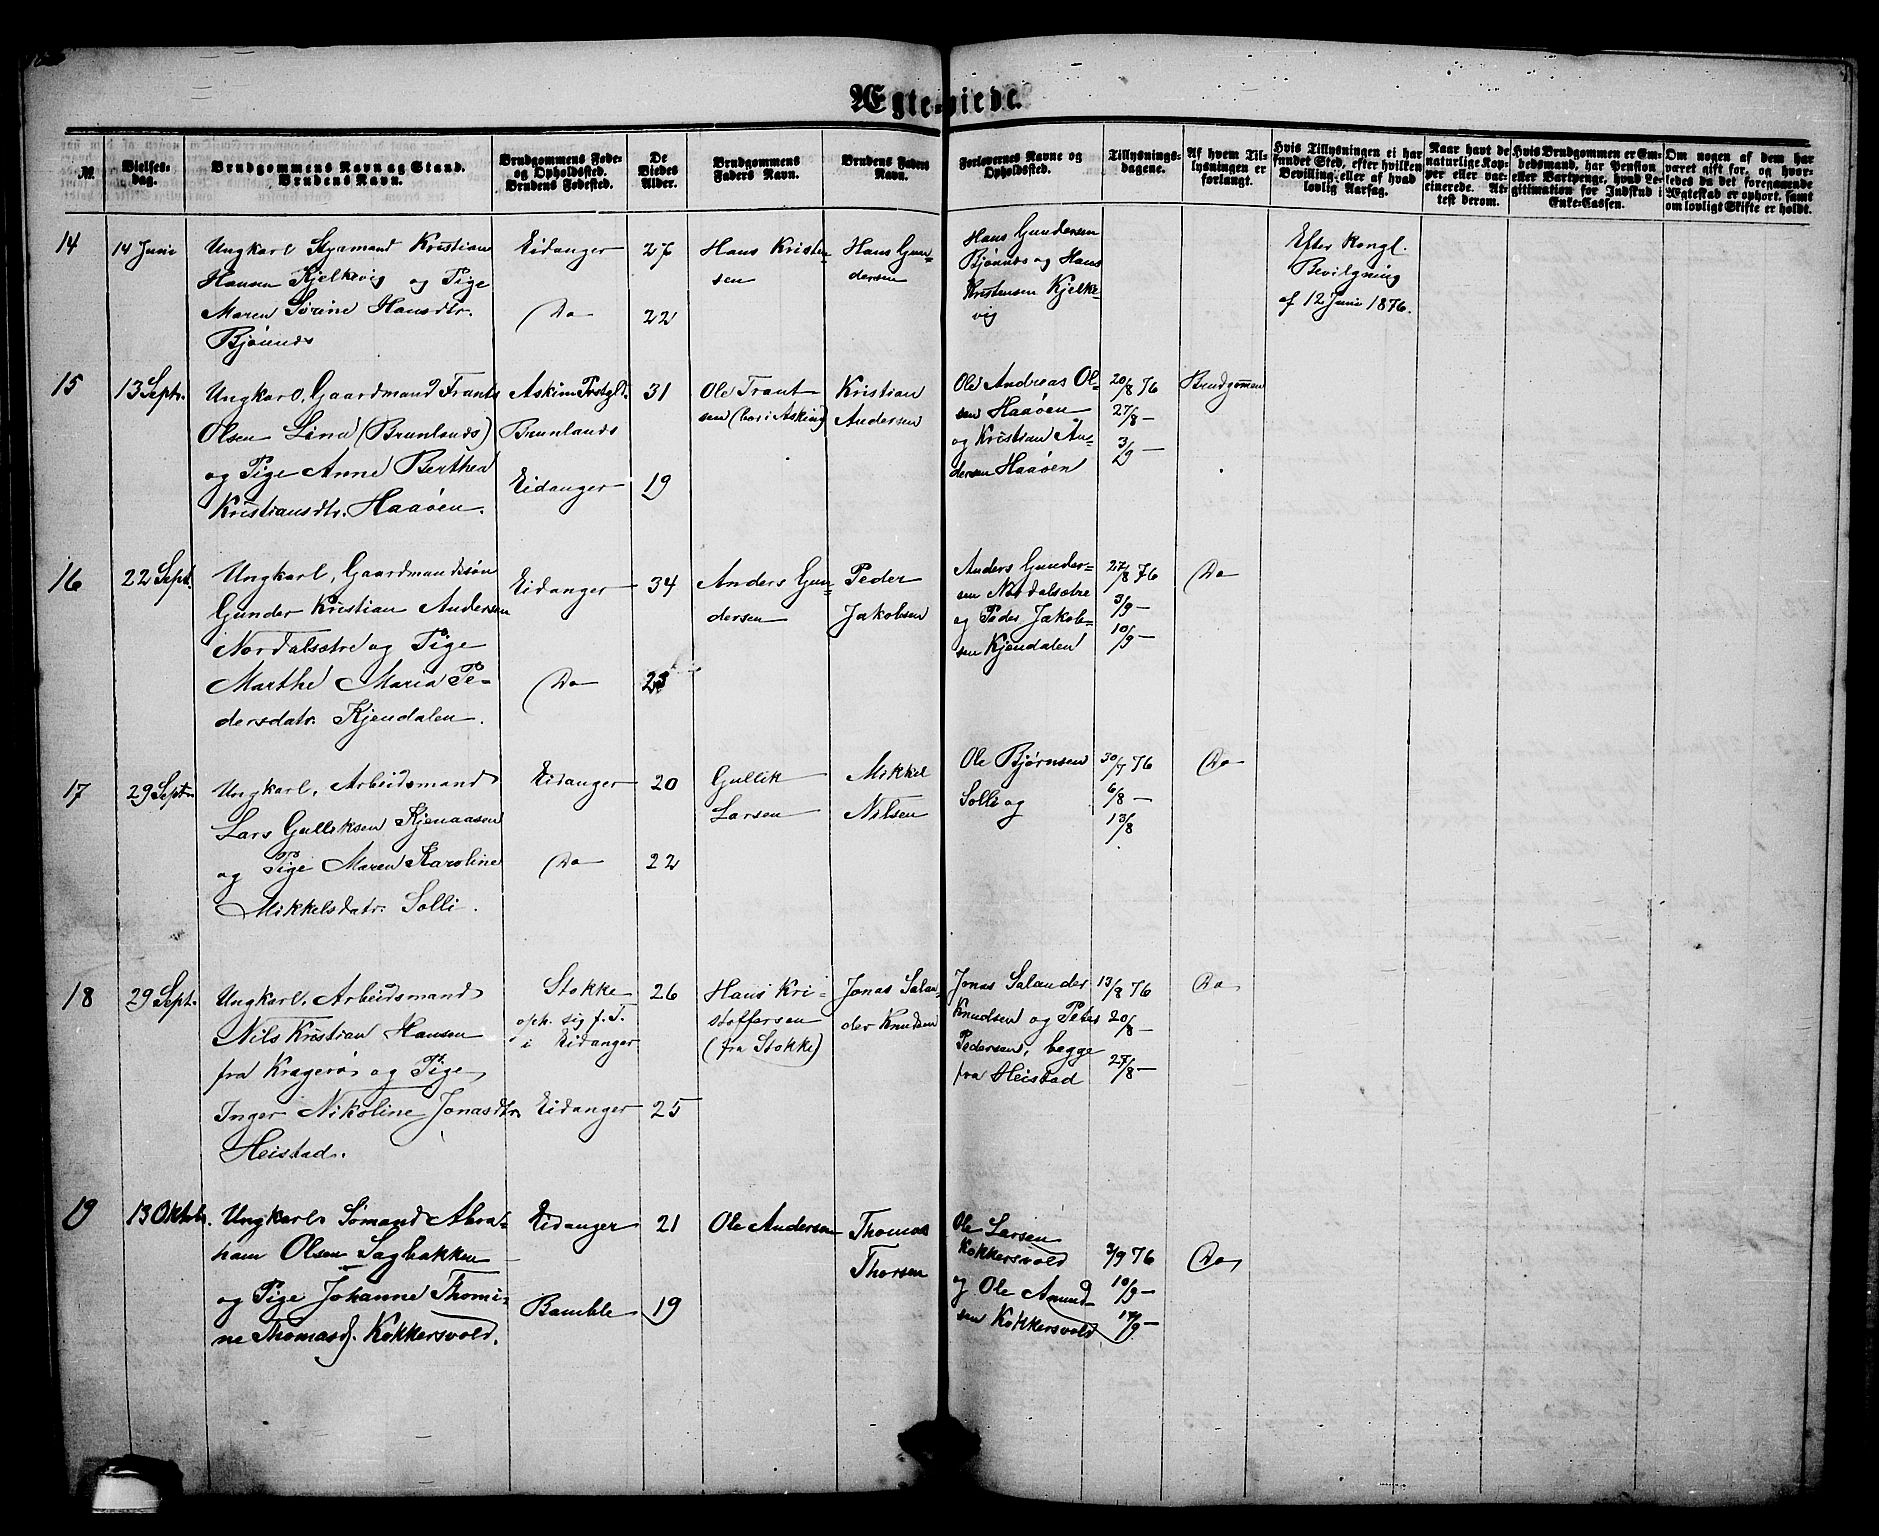 Ægteviede.
№.
Vielses-
dag.
Brudgommens Navn og Stand.
Brudens Navn.
Brudgommens Føde-
og Opholdssted.
Brudens Fødested.
De
Viedes
Alder.
Brudgommens
Faders Navn.
Brudens Faders
Navn.
Forlovernes Navne og
Opholdssted.
Tillysnings-
dagene.
Af hvem Til-
lysningen er
forlangt.
Hvis Tillysningen ei har
fundet Sted, efter hvilken
Bevilling, eller af hvad
lovlig Aarsag.
Naar havt de
naturlige Kop-
per eller vac-
cinerede. At-
test derom.
Hvis Brudgommen er Em-
bedsmand, har Pension
eller Vartpenge, hvad Le-
gitimation for Indskud i
Enke-Cassen.
Om nogen af dem har
været gift før, og hvor-
ledes da det foregaaende
Ægteskab er ophørt, samt
om lovligt Skifte er holdt.
14
14 Juni
Ungkarl Styrmand Kristian
Hansen Kjelkevig og Pige
Maren Sørine Hansdtr.
Bjønnes
Eidanger
Do
27
22
Hans Kristen-
sen
Hans Gun-
dersen
Hans Gundersen
Bjønnes og Hans
Kristensen Kjelke-
vig
Efter Kongl.
Bevilgning
af 12 Juni 1876.
15
13 Sept.
Ungkarl, Gaardmand Frants
Olsen Lind (Brunlands)
og Pige Anne Berthea
Kristiansdtr. Haaøen.
Askim Prstgld.
Brunlands
Eidanger
31
19
Ole Trant
sen (bor i Askim)
Kristian
Andersen
Ole Andreas Ol-
sen Haaøen
og Kristian An-
dersen Haaøen
20/8 76
27/8 —
3/9 —
Brudgommen
16
22 Sept.
Ungkarl, Gaardmandssøn
Gunder Kristian Andersen
Nordalsætre og Pige
Marthe Maria Pe-
dersdatr. Kjendalen.
Eidanger
Do
34
23
Anders Gun-
dersen
Peder
Jakobsen
Anders Gunder-
sen Nordalsætre
og Peder Jakob-
sen Kjendalen
27/8 76
3/9 —
10/9 —
Do
17
29 Sept.
Ungkarl, Arbeidsmand
Lars Gulliksen Kjenaasen
og Pige Maren Karoline
Mikkelsdatr. Solli.
Eidanger
Do
20
22
Gullik
Larsen
Mikkel
Nilsen
Ole Bjørnsen
Solli og
30/7 76
6/8 —
13/8
Do
18
29 Sept.
Ungkarl, Arbeidsmand
Nils Kristian Hansen
fra Kragerø og Pige
Inger Nikoline Jonasdtr.
Heistad.
Stokke
oph. sig f. T.
i Eidanger
Eidanger
26
25
Hans Kri-
stoffersen
(fra Stokke)
Jonas Salan-
der Knudsen
Jonas Salander
Knudsen og Peter
Pedersen, begge
fra Heistad
13/8 76
20/8 —
27/8 —
Do
19
13 Oktob.
Ungkarl Sømand Abra-
ham Olsen Sagbakken
og Pige Johanne Thomi-
ne Thomasd. Kokkersvold.
Eidanger
Bamble
21
19
Ole Andersen
Thomas
Thorsen
Ole Larsen
Kokkersvold
og Ole Amund-
sen Kokkersvold
3/9 76
10/9 —
17/9 —
Do